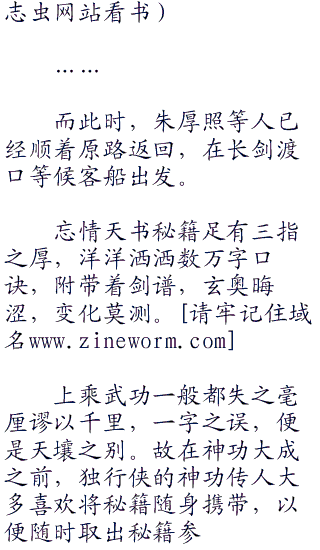 志虫网站看书）
……
而此时，朱厚照等人已
经顺着原路返回，在长剑渡
口等候客船出发。
忘情天书秘籍足有三指
之厚，洋洋洒洒数万字口
诀，附带着剑谱，玄奥晦
涩，变化莫测。[请牢记住域
名www.zineworm.com]
上乘武功一般都失之毫
厘谬以千里，一字之误，便
是天壤之别。故在神功大成
之前，独行侠的神功传人大
多喜欢将秘籍随身携带，以
便随时取出秘籍参